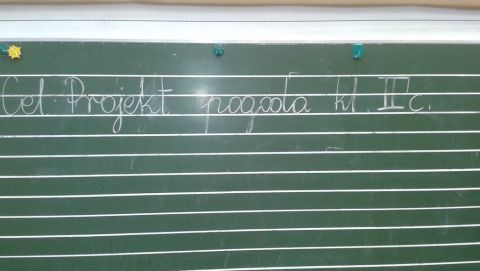 Cel Projekt pogoda kl. II c.